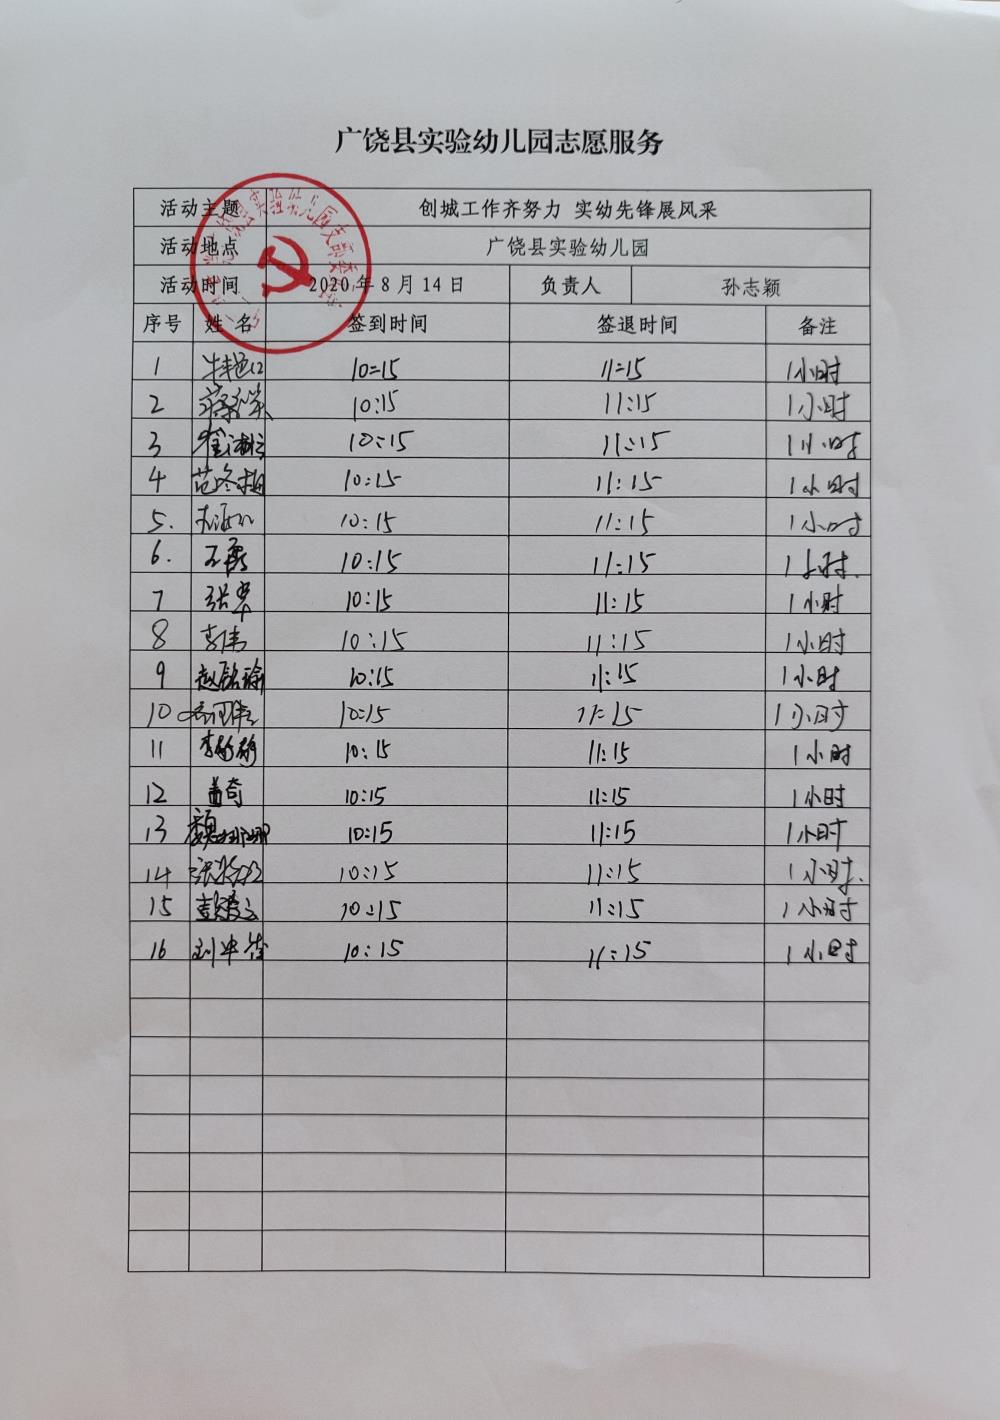 广饶县实验幼儿园志愿服务
活动主题 创城工作齐努力 实幼先锋展风采
活动地点 广饶县实验幼儿园
活动时间 2020年8月14日 负责人 孙志颖
序号 姓 名 签到时间 签退时间 备注
1 10:15 11:15 1小时
2 10:15 11:15 1小时
3 10:15 11:15 1小时
4 范冬梅 10:15 11:15 1小时
5. 10:15 11:15 1小时
6. 王磊 10:15 11:15 1小时.
7 张翠 10:15 11:15 1小时
8 李伟 10:15 11:15 1小时
9 赵铭瑜 10:15 11:15 1小时
10 10:15 11:15 1小时
11 10:15 11:15 1小时
12 盖奇 10:15 11:15 1小时
13 10:15 11:15 1小时
14 10:15 11:15 1小时.
15 10:15 11:15 1小时
16 10:15 11:15 1小时